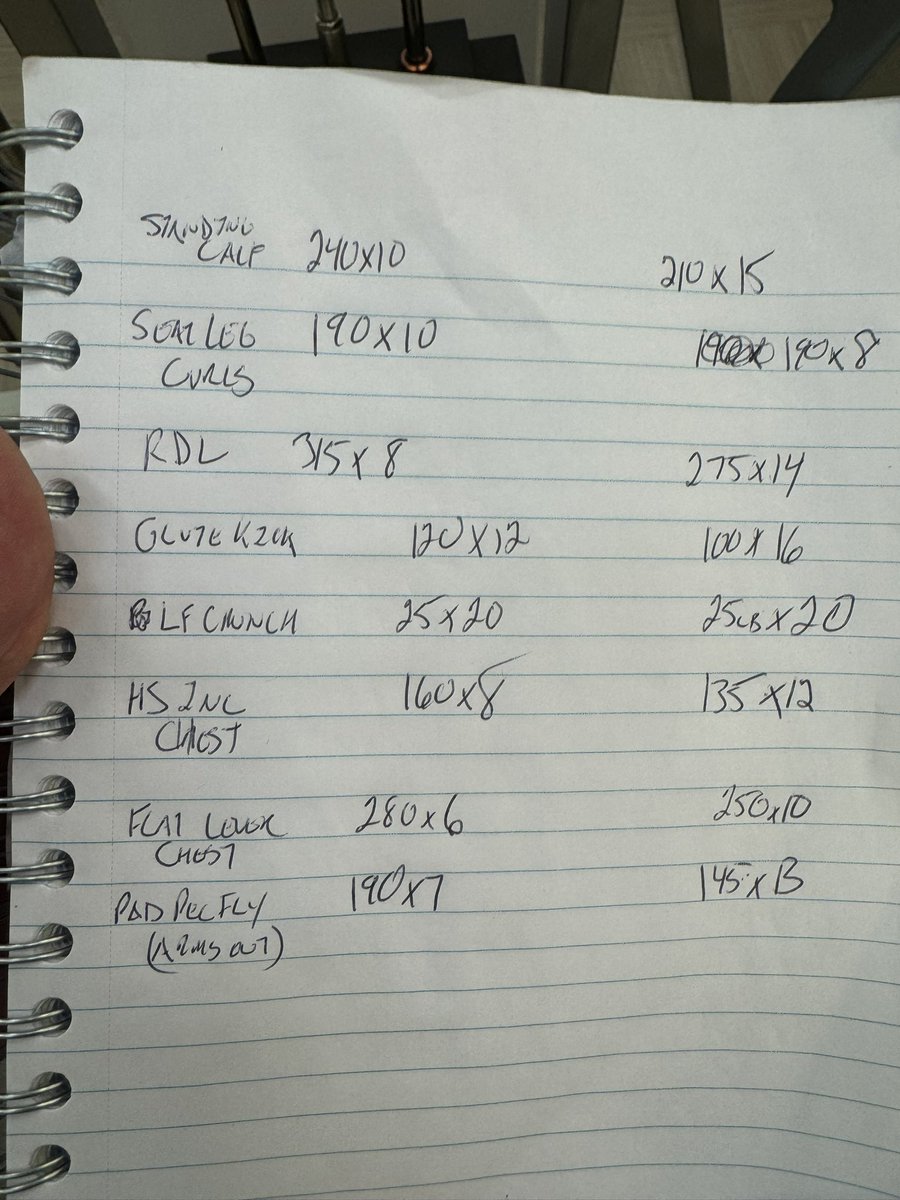 STANDING
CALF 240x10 210x15
SEAT LEG 190x10 190x8
CURLS
RDL 315x8 275x14
GLUTE KICK 120x12 100x16
LF CRUNCH 25x20 25LBx20
HS INC 160x8 135x12
CHEST
FLAT LOWER 280x6 250x10
CHEST
PAD PEC FLY 190x7 145x13
(ARMS OUT)